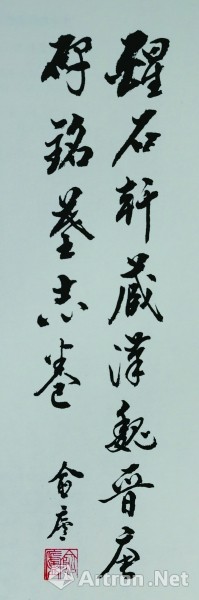 醒石轩藏汉魏晋唐
碑铭墓志卷
Artron.Net